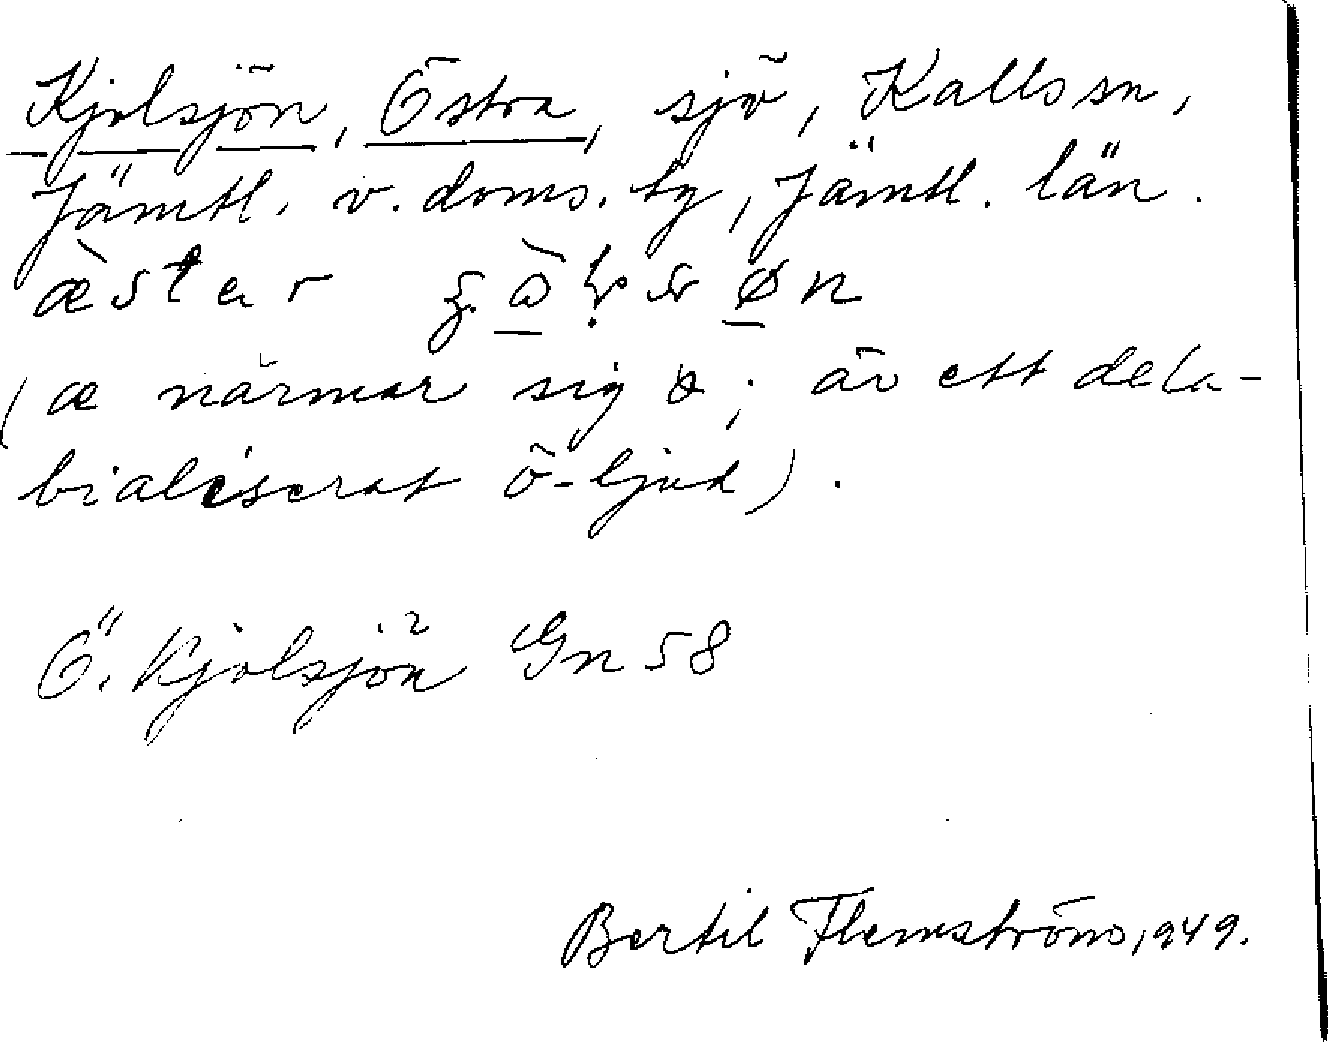 Kjolsjön, Östra, sjö, Kalls sn,
Jämtl. v. doms. tg, Jämtl. län.
æ̀star
(æ närmar sig ; är ett dela-
bialiserat ö-ljud).
Ö. Kjolsjön Gn 58
Bertil Flemström, 1949.